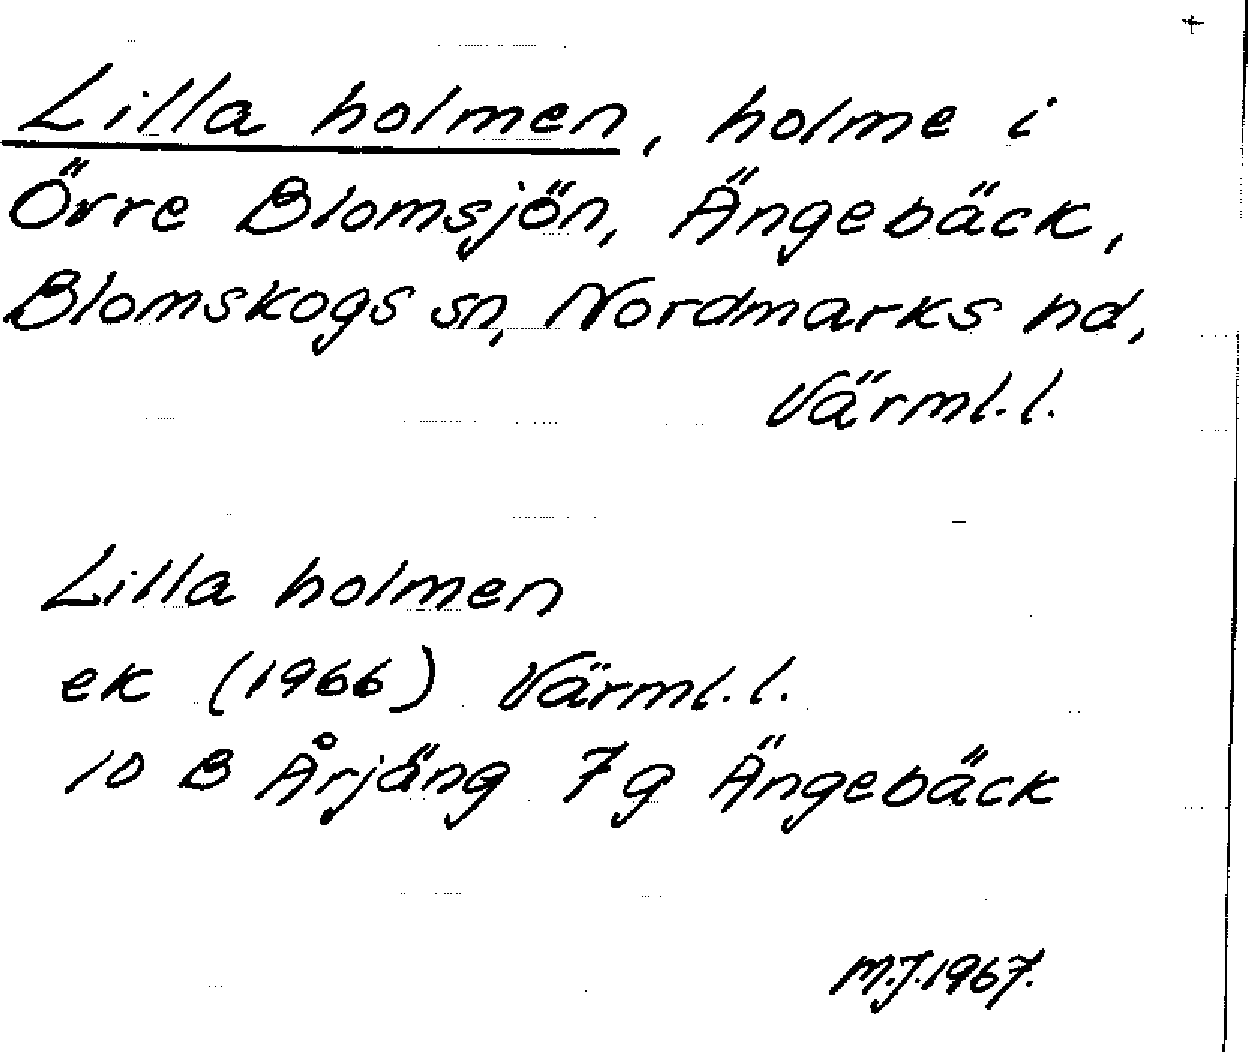 +
Lilla holmen, holme i
Övre Blomsjön, Ängebäck,
Blomskogs sn, Nordmarks hd,
Värml. l.
Lilla holmen
ek (1966) Värml. l.
10 B Årjäng 7g Ängebäck
M.J. 1967.